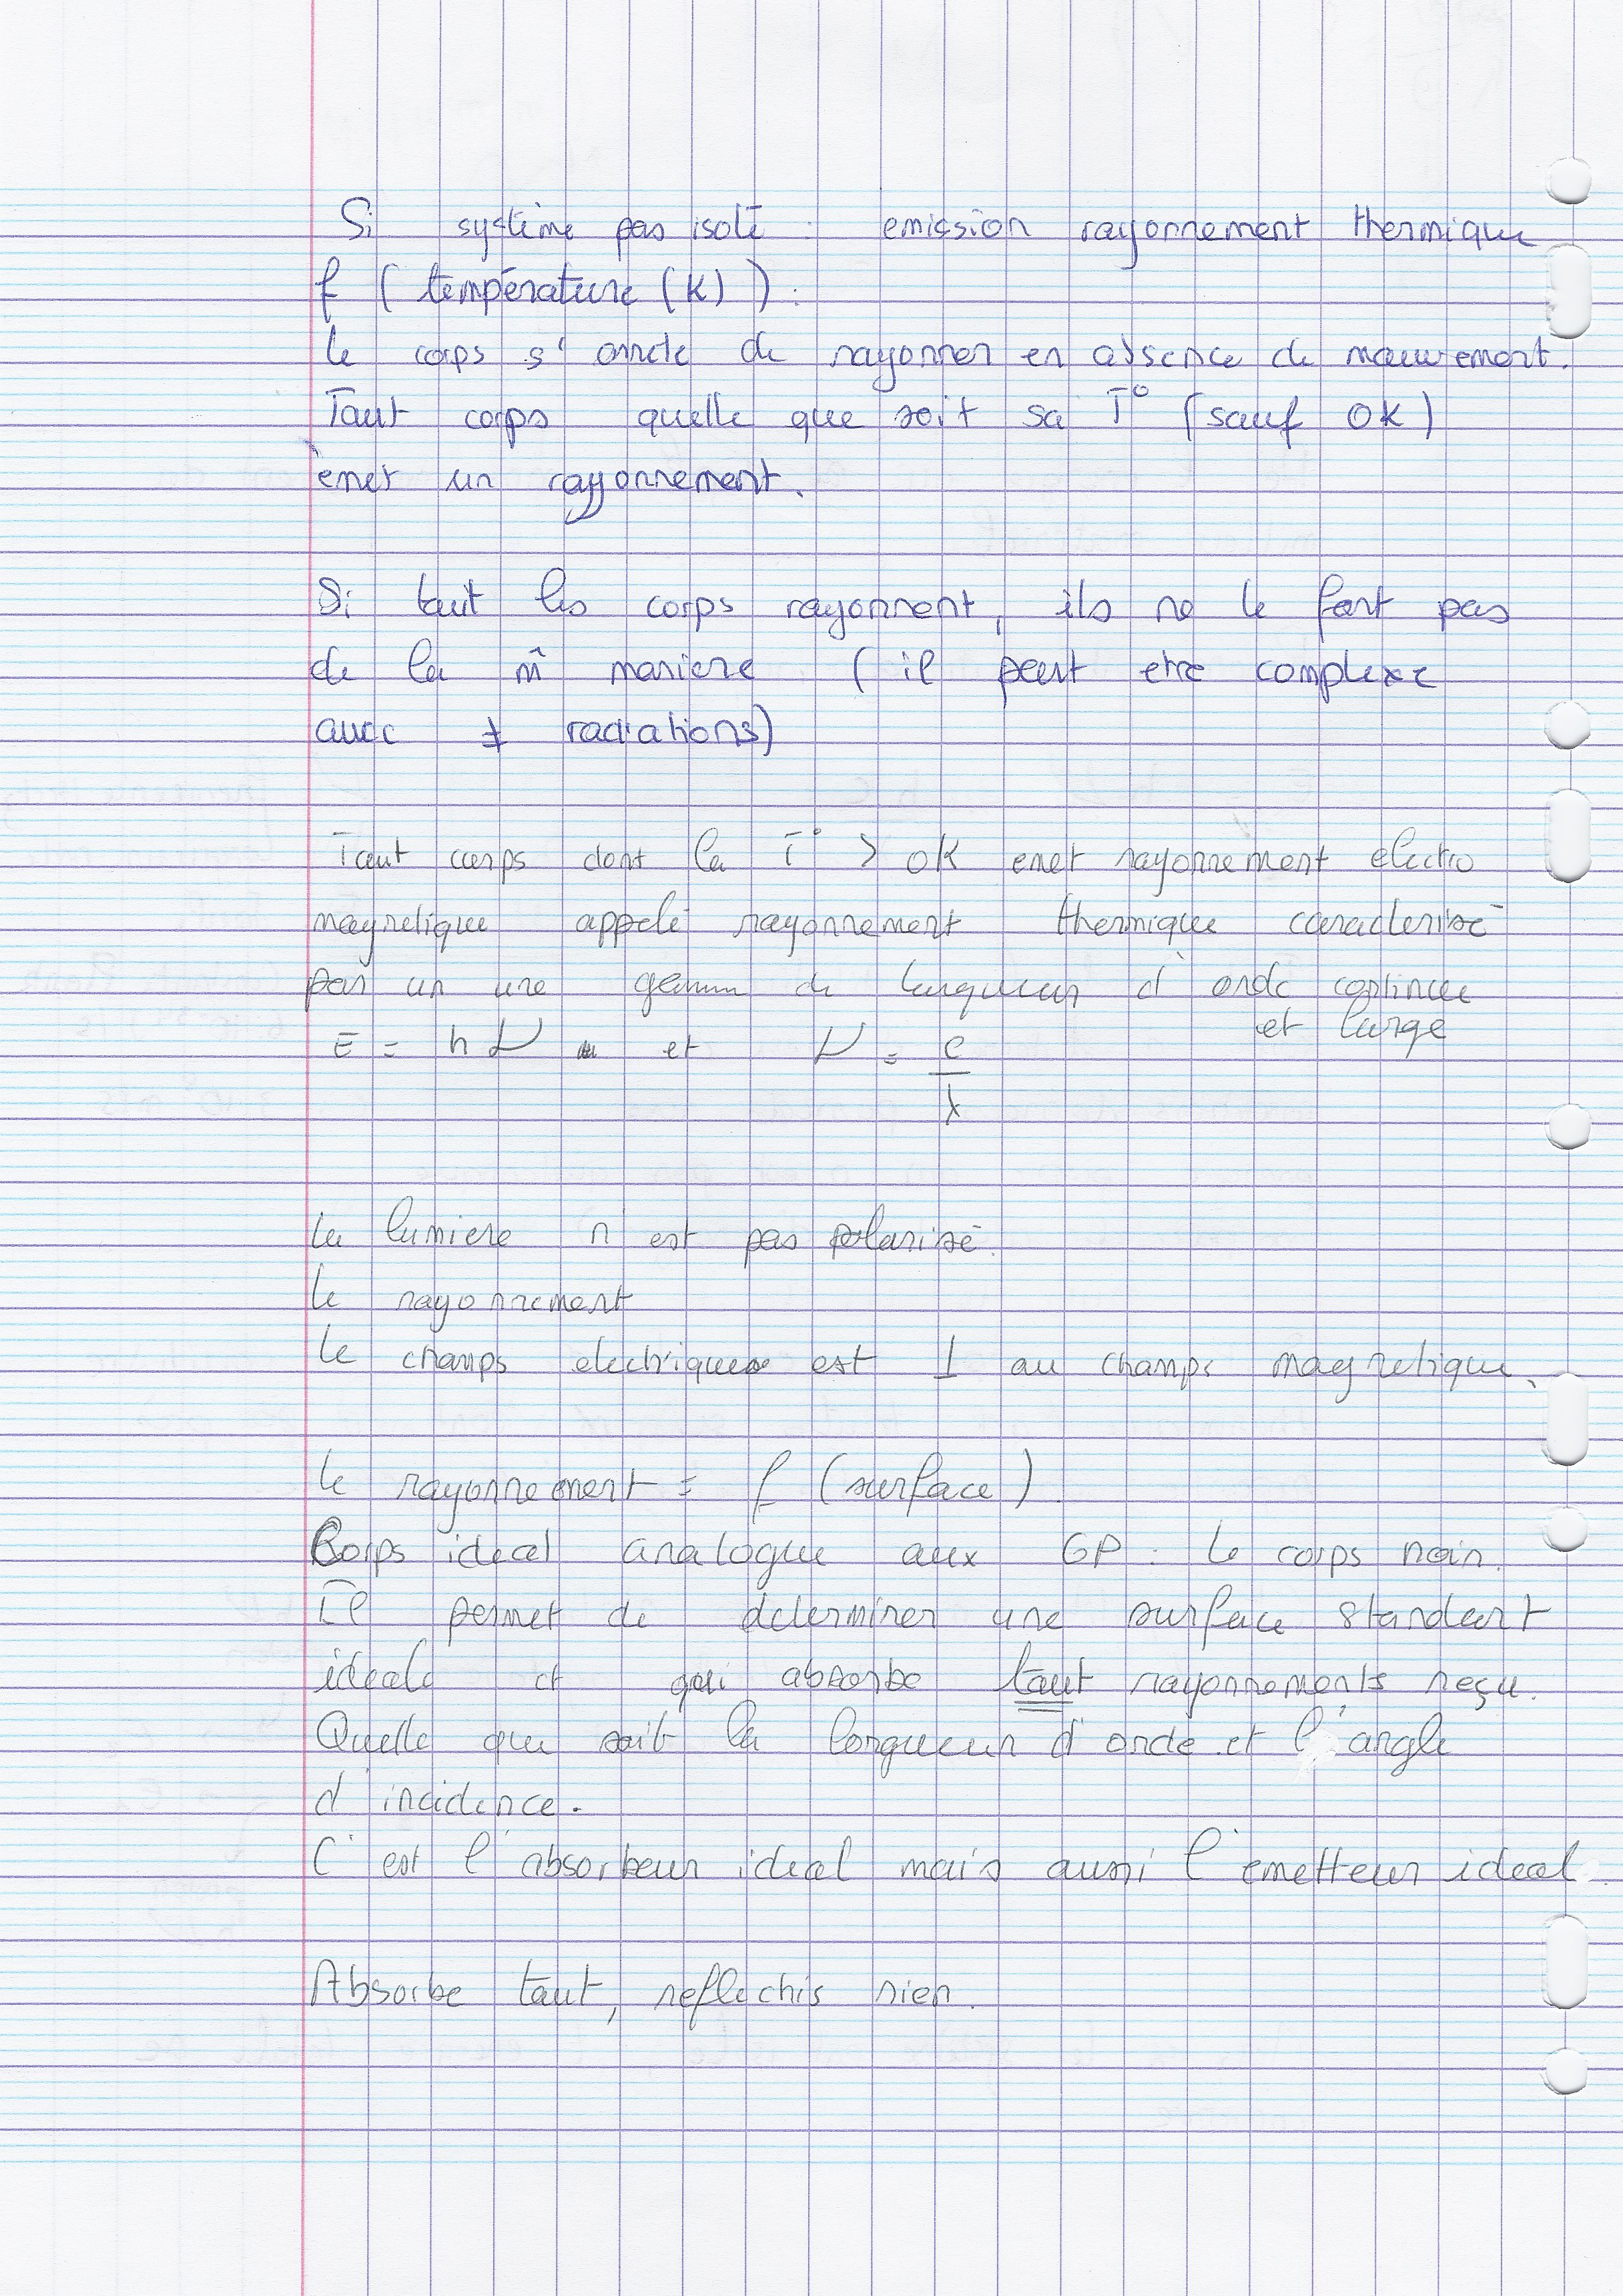 Si système pas isolé : emission rayonnement thermique
f ( température (K) ) .
le corps s'arrete de rayonner en absence de mouvement.
Tout corps quelle que soit sa T° (sauf 0K)
emet un rayonnement.
Si tout les corps rayonnent, ils ne le font pas
de la m̂ maniere ( il peut etre complexe
avec ≠ radiations)
Tout corps dont la T° > 0K emet rayonnement electro
magnetique appelé rayonnement thermique caracterisé
par un une gamm de longueur d'onde continue
et large
E = h ν et ν = c/λ
la lumiere n'est pas polarisé.
le rayonnement
le champs electrique est ⊥ au champs magnetique.
le rayonnement = f (surface).
Corps ideal analogue aux GP : le corps noir.
Il permet de determiner une surface standart
ideale et qui absorbe tout rayonnements reçu.
Quelle que soit la longueur d'onde et l'angle
d'incidence.
C'est l'absorbeur ideal mais aussi l'emetteur ideal.
Absorbe tout, reflechis rien.